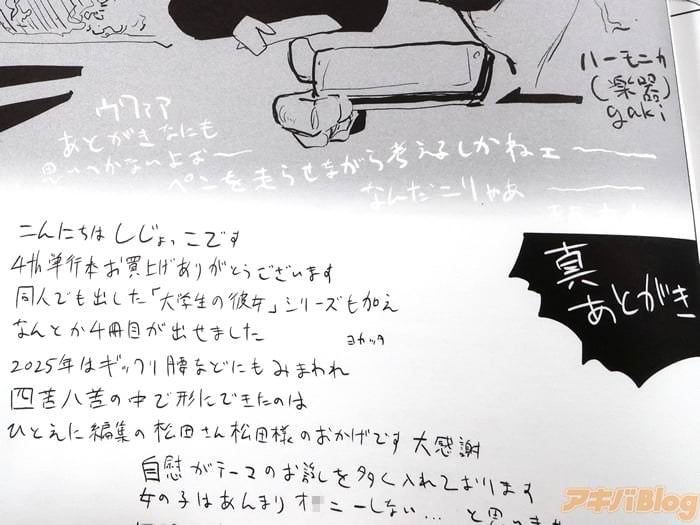 ハーモニカ
(楽器)
gaki
ウワァア
あとがきなにも
思いつかないよお〜
ペンを走らせながら考えるしかねェ
なんだこりゃあ
真
あとがき
こんにちは しじょっこです
4th単行本お買上げありがとうございます
同人でも出した「大学生の彼女」シリーズも加え
なんとか4冊目が出せました
ヨカッタ
2025年はギックリ腰などにもみまわれ
四苦八苦の中で形にできたのは
ひとえに編集の松田さん松田様のおかげです 大感謝
自慰がテーマのお話しを多く入れております
女の子はあんまりオ ニーしない… と思い
アキバBlog